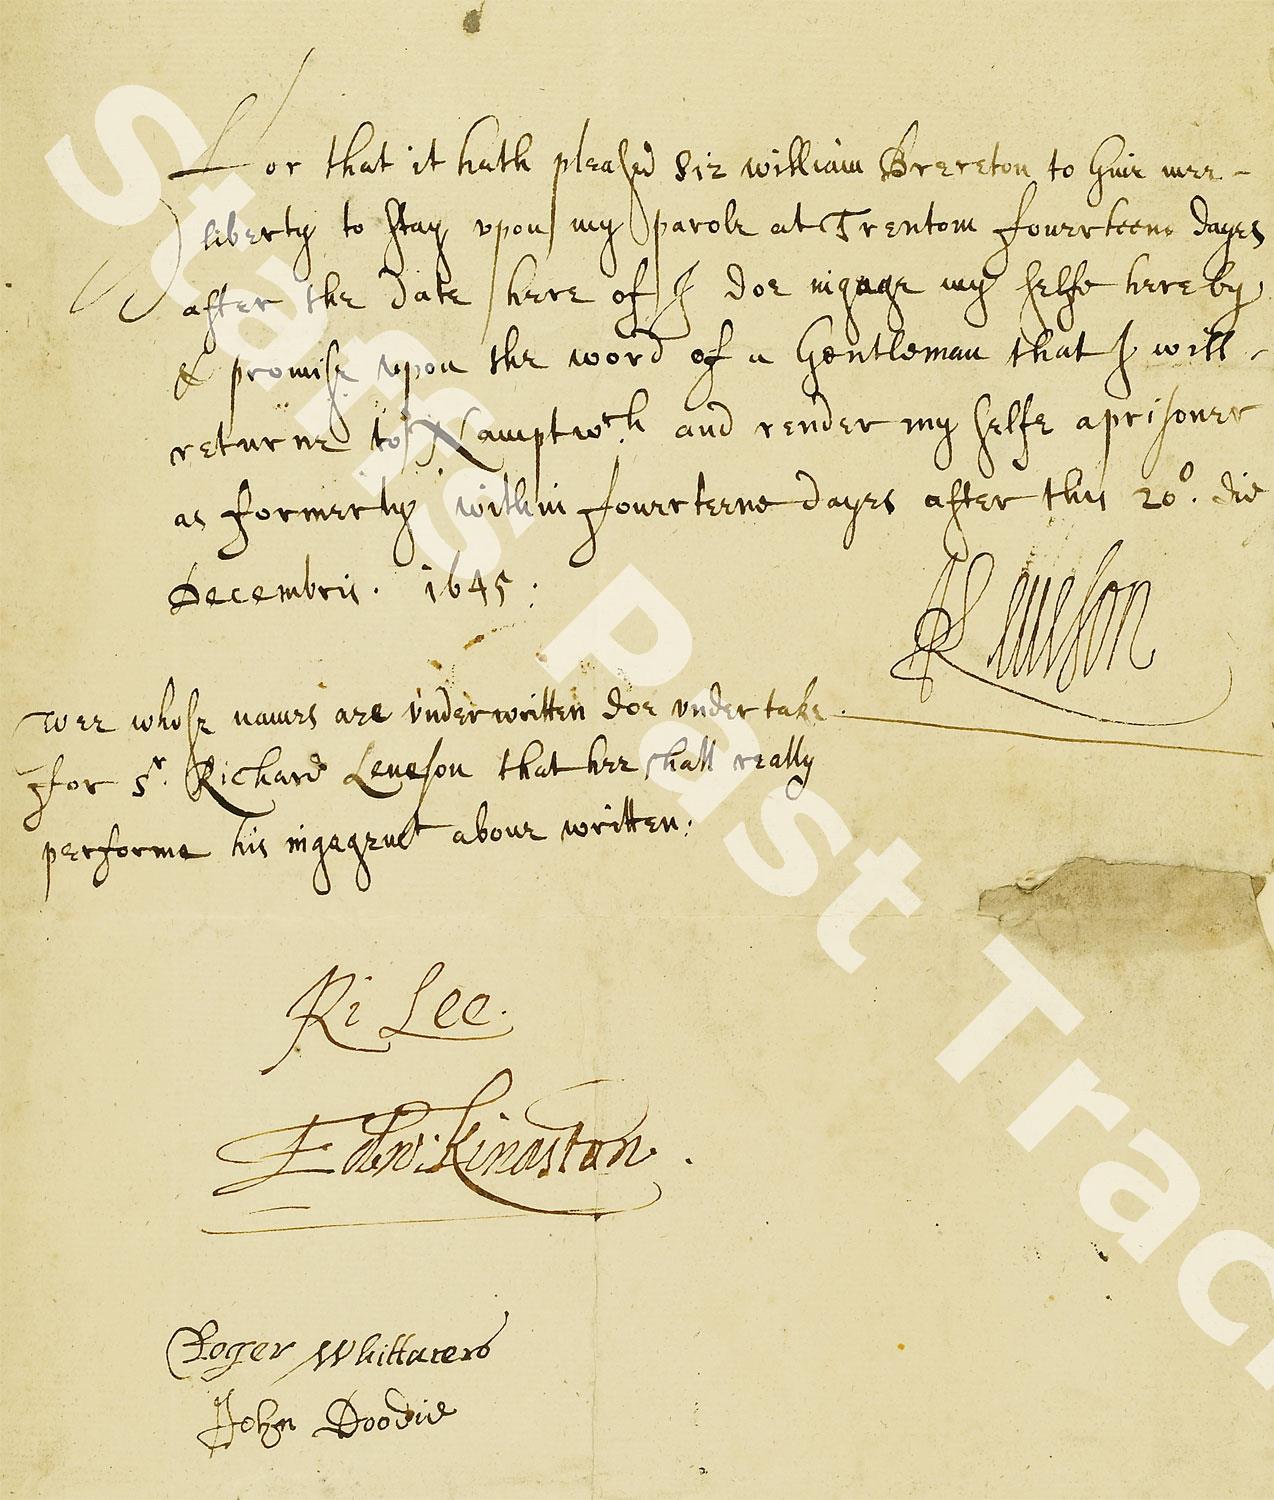 For that it hath pleased Sir william Brereton to Giue mee -
liberty to stay upon my parole at Trentom fourteene dayes
after the date here of I doe ingage my selfe hereby
& promise upon the word of a Gentleman that I will -
returne to Namptwch and render my selfe a prisoner
as formerly within fourteene dayes after this 20º. die
Decembris. 1645:
R Leueson
Wee whose names are vnderwritten doe vndertake
ffor Sr. Richard Leueson that hee shall really
performe his ingagemt aboue written:
Ri Lee.
Edw: Kinaston.
Roger Whittacers
John Doodie
Staffs Past Trac